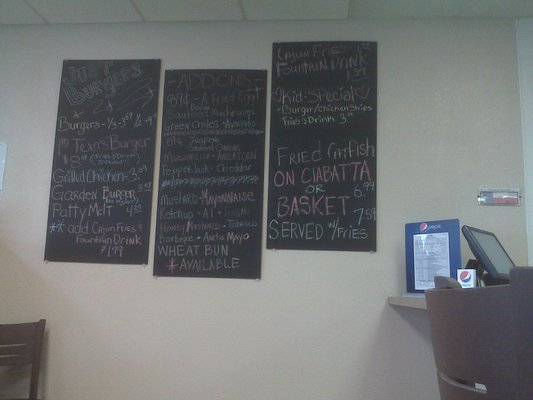 JUST
BURGERS
Burgers - 1/3 - 3.89 1/2 - 4.
Texas Burger
$8
Grilled Chicken - 3.89
Garden Burger
Patty Melt 4.35
** add Cajun Fries
Fountain Drink
1.99
- ADDONS -
89¢ - A Fried Egg
Bacon
Sauteed Mushrooms
Green Chiles - Avocado
69¢ - Jalapeno
Sauteed Onions
Mozzarella - American
Pepper Jack - Cheddar
Mustard - Mayonnaise
Ketchup - A1 -
Honey Mustard - Tobasco
Barbeque - Ancho Mayo
WHEAT BUN
* AVAILABLE
Cajun Fries
Fountain Drink
1.99
Kid-Special
Burger/chicken strips
Fries Drink 3.
Fried Catfish
ON CIABATTA
OR 6.99
BASKET
7.59
SERVED w/ FRIES
pepsi